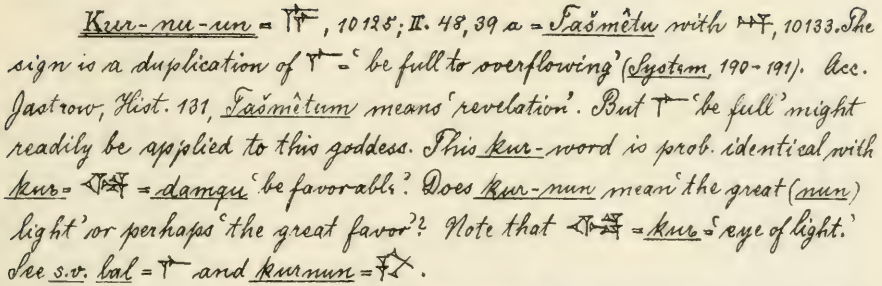 Kur-nu-un = 𒁇, 10125; II. 48, 39 a = Tašmêtu with 𒀭, 10133. The
sign is a duplication of = 'be full to overflowing' (System, 190-191). Acc.
Jastrow, Hist. 131, Tašmêtum means 'revelation'. But 'be full' might
readily be applied to this goddess. This kur-word is prob. identical with
kur = = damqu 'be favorable'. Does kur-nun mean 'the great (nun)
light' or perhaps 'the great favor'? Note that = kur = 'eye of light.'
See s.v. bal = and kurnun = .